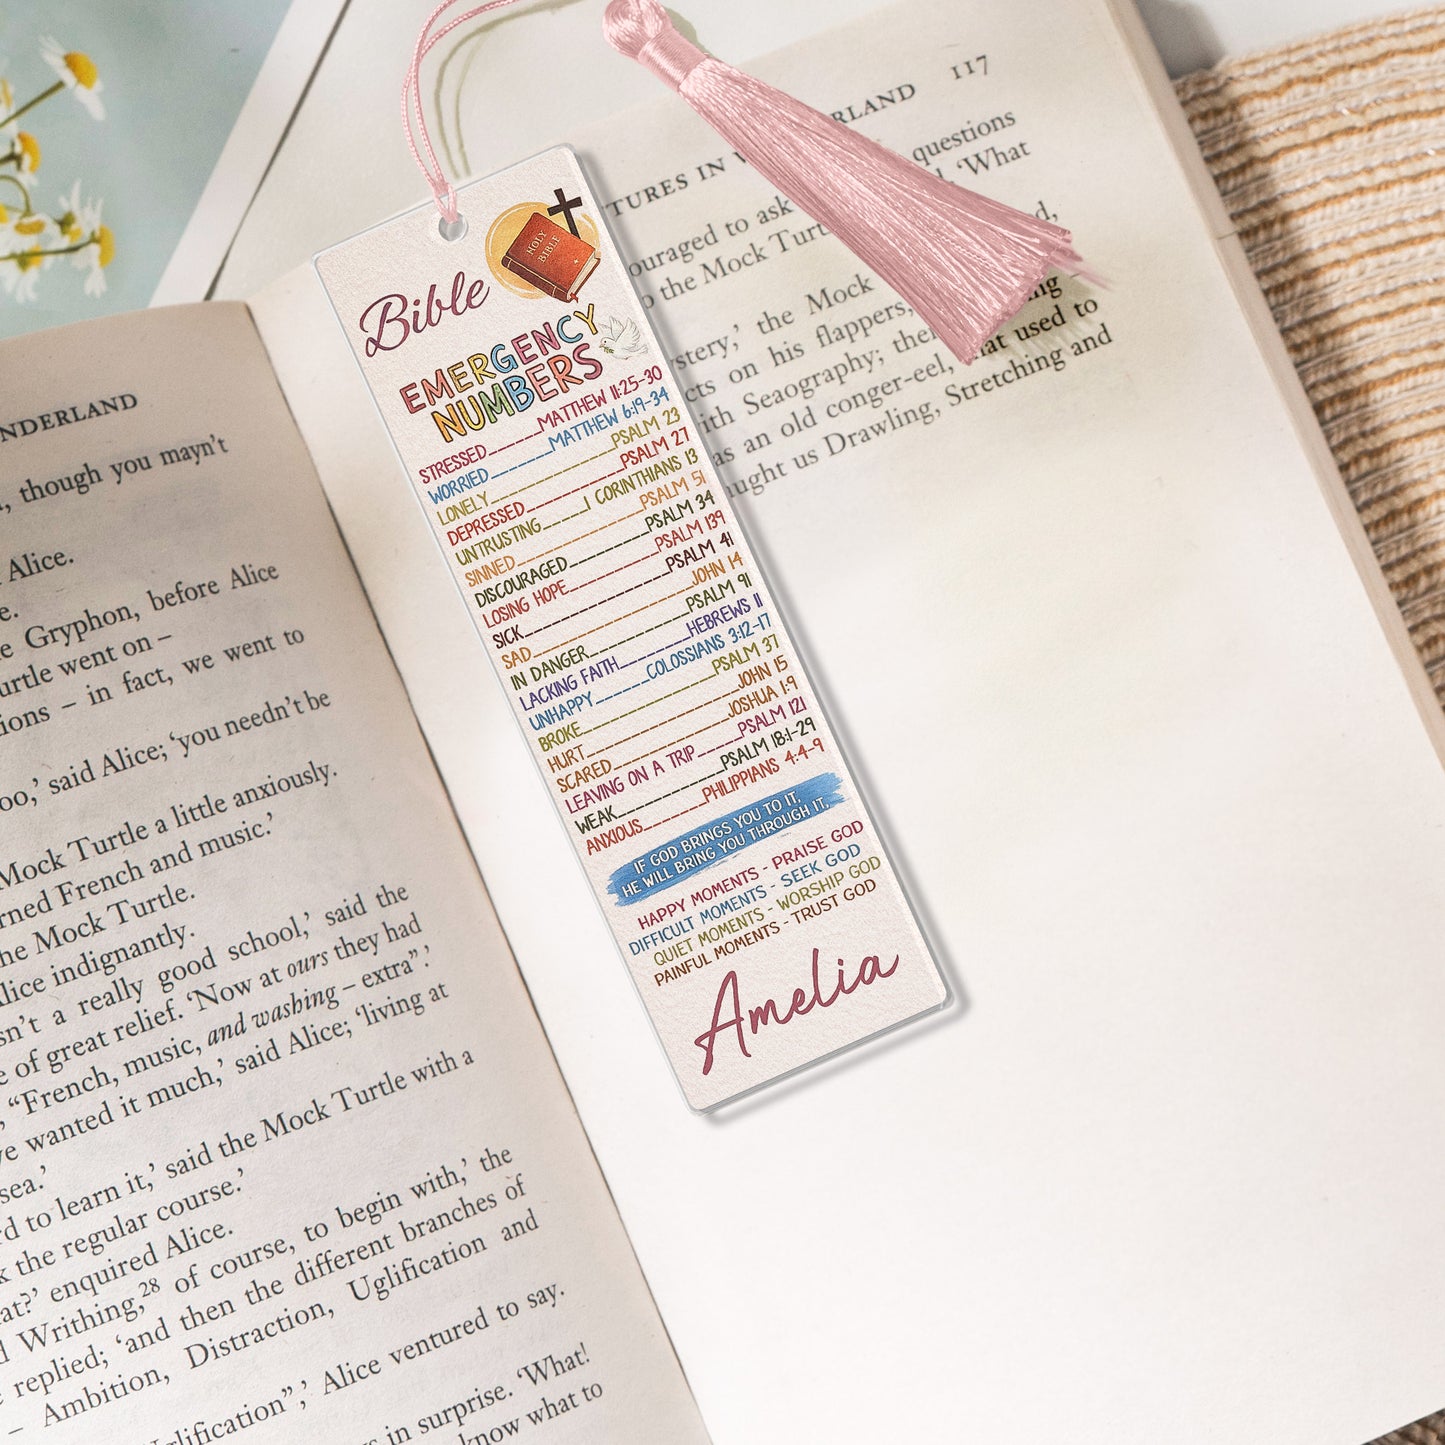 NDERLAND
, though you mayn't
Alice.
e.
e Gryphon, before Alice
urtle went on –
ions – in fact, we went to
oo,' said Alice; 'you needn't be
Mock Turtle a little anxiously.
rned French and music.'
he Mock Turtle.
lice indignantly.
sn't a really good school,' said the
e of great relief. 'Now at ours they had
, "French, music, and washing – extra".'
ve wanted it much,' said Alice; 'living at
sea.'
rd to learn it,' said the Mock Turtle with a
k the regular course.'
at?' enquired Alice.
d Writhing,²⁸ of course, to begin with,' the
e replied; 'and then the different branches of
– Ambition, Distraction, Uglification and
glification",' Alice ventured to say.
s in surprise. 'What!
know what to
TURES IN W RLAND 117
questions
ouraged to ask d. 'What
o the Mock Turt d,
ystery,' the Mock ng
cts on his flappers,
ith Seaography; the that used to
as an old conger-eel, Stretching and
aught us Drawling,
HOLY
BIBLE
Bible
EMERGENCY
NUMBERS
STRESSED______MATTHEW 11:25-30
WORRIED_______MATTHEW 6:19-34
LONELY______________PSALM 23
DEPRESSED___________PSALM 27
UNTRUSTING_____1 CORINTHIANS 13
SINNED______________PSALM 51
DISCOURAGED_________PSALM 34
LOSING HOPE__________PSALM 139
SICK________________PSALM 41
SAD_________________JOHN 14
IN DANGER___________PSALM 91
LACKING FAITH________HEBREWS 11
UNHAPPY______COLOSSIANS 3:12-17
BROKE_______________PSALM 37
HURT________________JOHN 15
SCARED______________JOSHUA 1:9
LEAVING ON A TRIP_____PSALM 121
WEAK____________PSALM 18:1-29
ANXIOUS_______PHILIPPIANS 4:4-9
IF GOD BRINGS YOU TO IT,
HE WILL BRING YOU THROUGH IT,
HAPPY MOMENTS - PRAISE GOD
DIFFICULT MOMENTS - SEEK GOD
QUIET MOMENTS - WORSHIP GOD
PAINFUL MOMENTS - TRUST GOD
Amelia